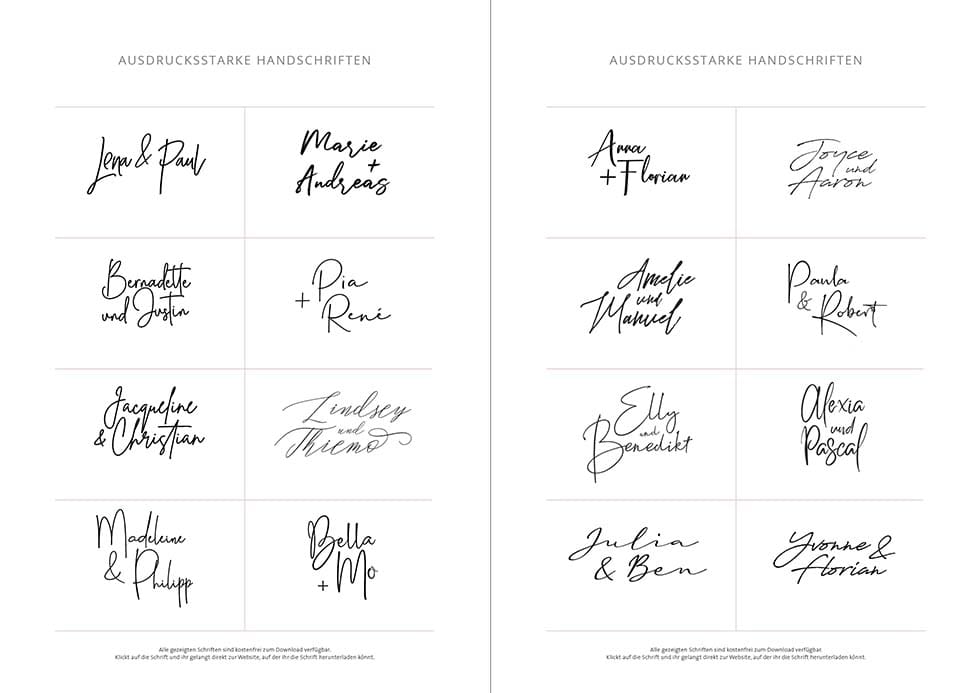 AUSDRUCKSSTARKE HANDSCHRIFTEN
Lena & Paul
Marie
+
Andreas
Bernadette
und Justin
Pia
+ René
Jacqueline
& Christian
Lindsey
und
Thiemo
Madeleine
& Philipp
Bella
+ Mo
Alle gezeigten Schriften sind kostenfrei zum Download verfügbar.
Klickt auf die Schrift und ihr gelangt direkt zur Website, auf der ihr die Schrift herunterladen könnt.
AUSDRUCKSSTARKE HANDSCHRIFTEN
Anna
+ Florian
Joyce
und
Aaron
Amelie
und
Manuel
Paula
& Robert
Elly
und
Benedikt
Alexia
und
Pascal
Julia
& Ben
Yvonne &
Florian
Alle gezeigten Schriften sind kostenfrei zum Download verfügbar.
Klickt auf die Schrift und ihr gelangt direkt zur Website, auf der ihr die Schrift herunterladen könnt.